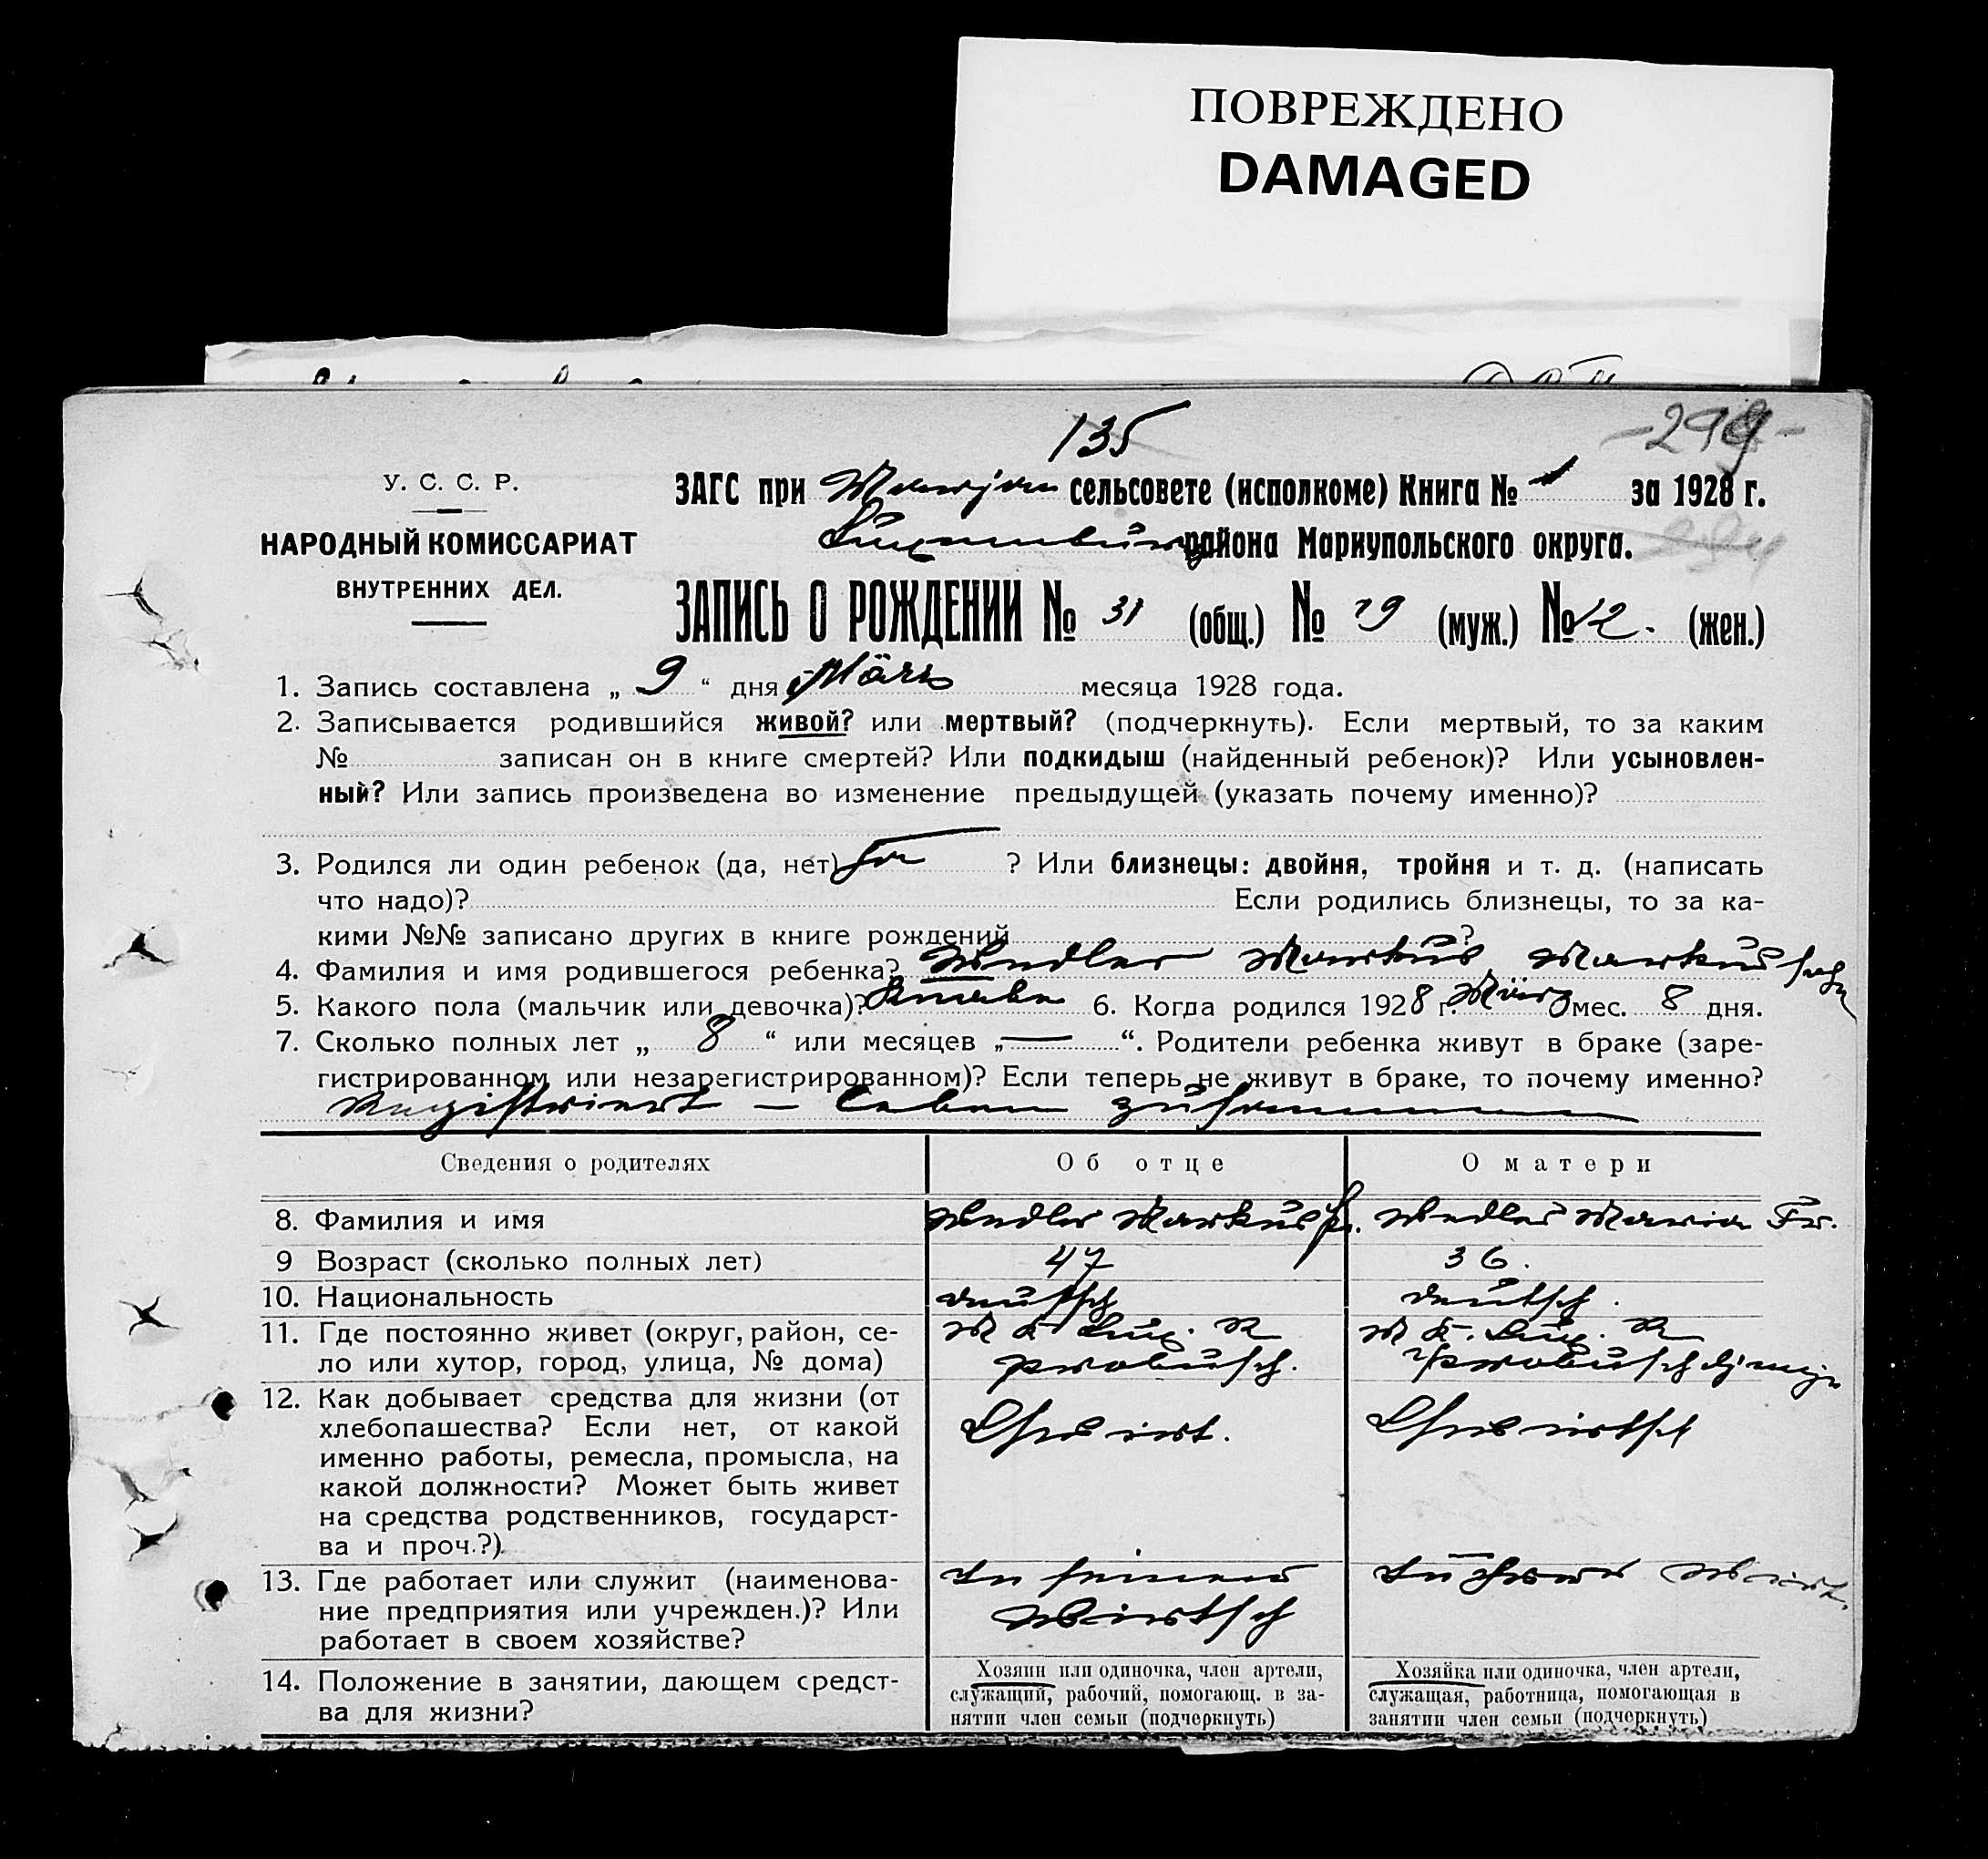 ПОВРЕЖДЕНО
DAMAGED
135
У. С. С. Р.
ЗАГС при сельсовете (исполкоме) Книга № 1 за 1928 г.
НАРОДНЫЙ КОМИССАРИАТ
района Мариупольского округа.
ВНУТРЕННИХ ДЕЛ.
ЗАПИСЬ О РОЖДЕНИИ № 31 (общ.) № 19 (муж.) № 12. (жен.)
1. Запись составлена „ 9 “ дня März месяца 1928 года.
2. Записывается родившийся живой? или мертвый? (подчеркнуть). Если мертвый, то за каким
№ записан он в книге смертей? Или подкидыш (найденный ребенок)? Или усыновлен-
ный? Или запись произведена во изменение предыдущей (указать почему именно)?
3. Родился ли один ребенок (да, нет) ? Или близнецы: двойня, тройня и т. д. (написать
что надо)? Если родились близнецы, то за ка-
кими №№ записано других в книге рождений ?
4. Фамилия и имя родившегося ребенка? Wedler Markus Markus
5. Какого пола (мальчик или девочка)? Knabe 6. Когда родился 1928 г. März мес. 8 дня.
7. Сколько полных лет „ 8 “ или месяцев „ — “. Родители ребенка живут в браке (заре-
гистрированном или незарегистрированном)? Если теперь не живут в браке, то почему именно?
Registriert — leben zusammen
Сведения о родителях Об отце О матери
8. Фамилия и имя Wedler Markus Wedler Maria Fr.
9 Возраст (сколько полных лет) 47 36.
10. Национальность deutsch deutsch.
11. Где постоянно живет (округ, район, се- M K Lux. R M K. Lux. R
ло или хутор, город, улица, № дома)
12. Как добывает средства для жизни (от
хлебопашества? Если нет, от какой
именно работы, ремесла, промысла, на
какой должности? Может быть живет
на средства родственников, государст-
ва и проч.?)
13. Где работает или служит (наименова- In seiner
ние предприятия или учрежден.)? Или Wirtsch
работает в своем хозяйстве?
14. Положение в занятии, дающем средст-
ва для жизни?
Хозяин или одиночка, член артели,
служащий, рабочий, помогающ. в за-
нятии член семьи (подчеркнуть)
Хозяйка или одиночка, член артели,
служащая, работница, помогающая в
занятии член семьи (подчеркнуть)